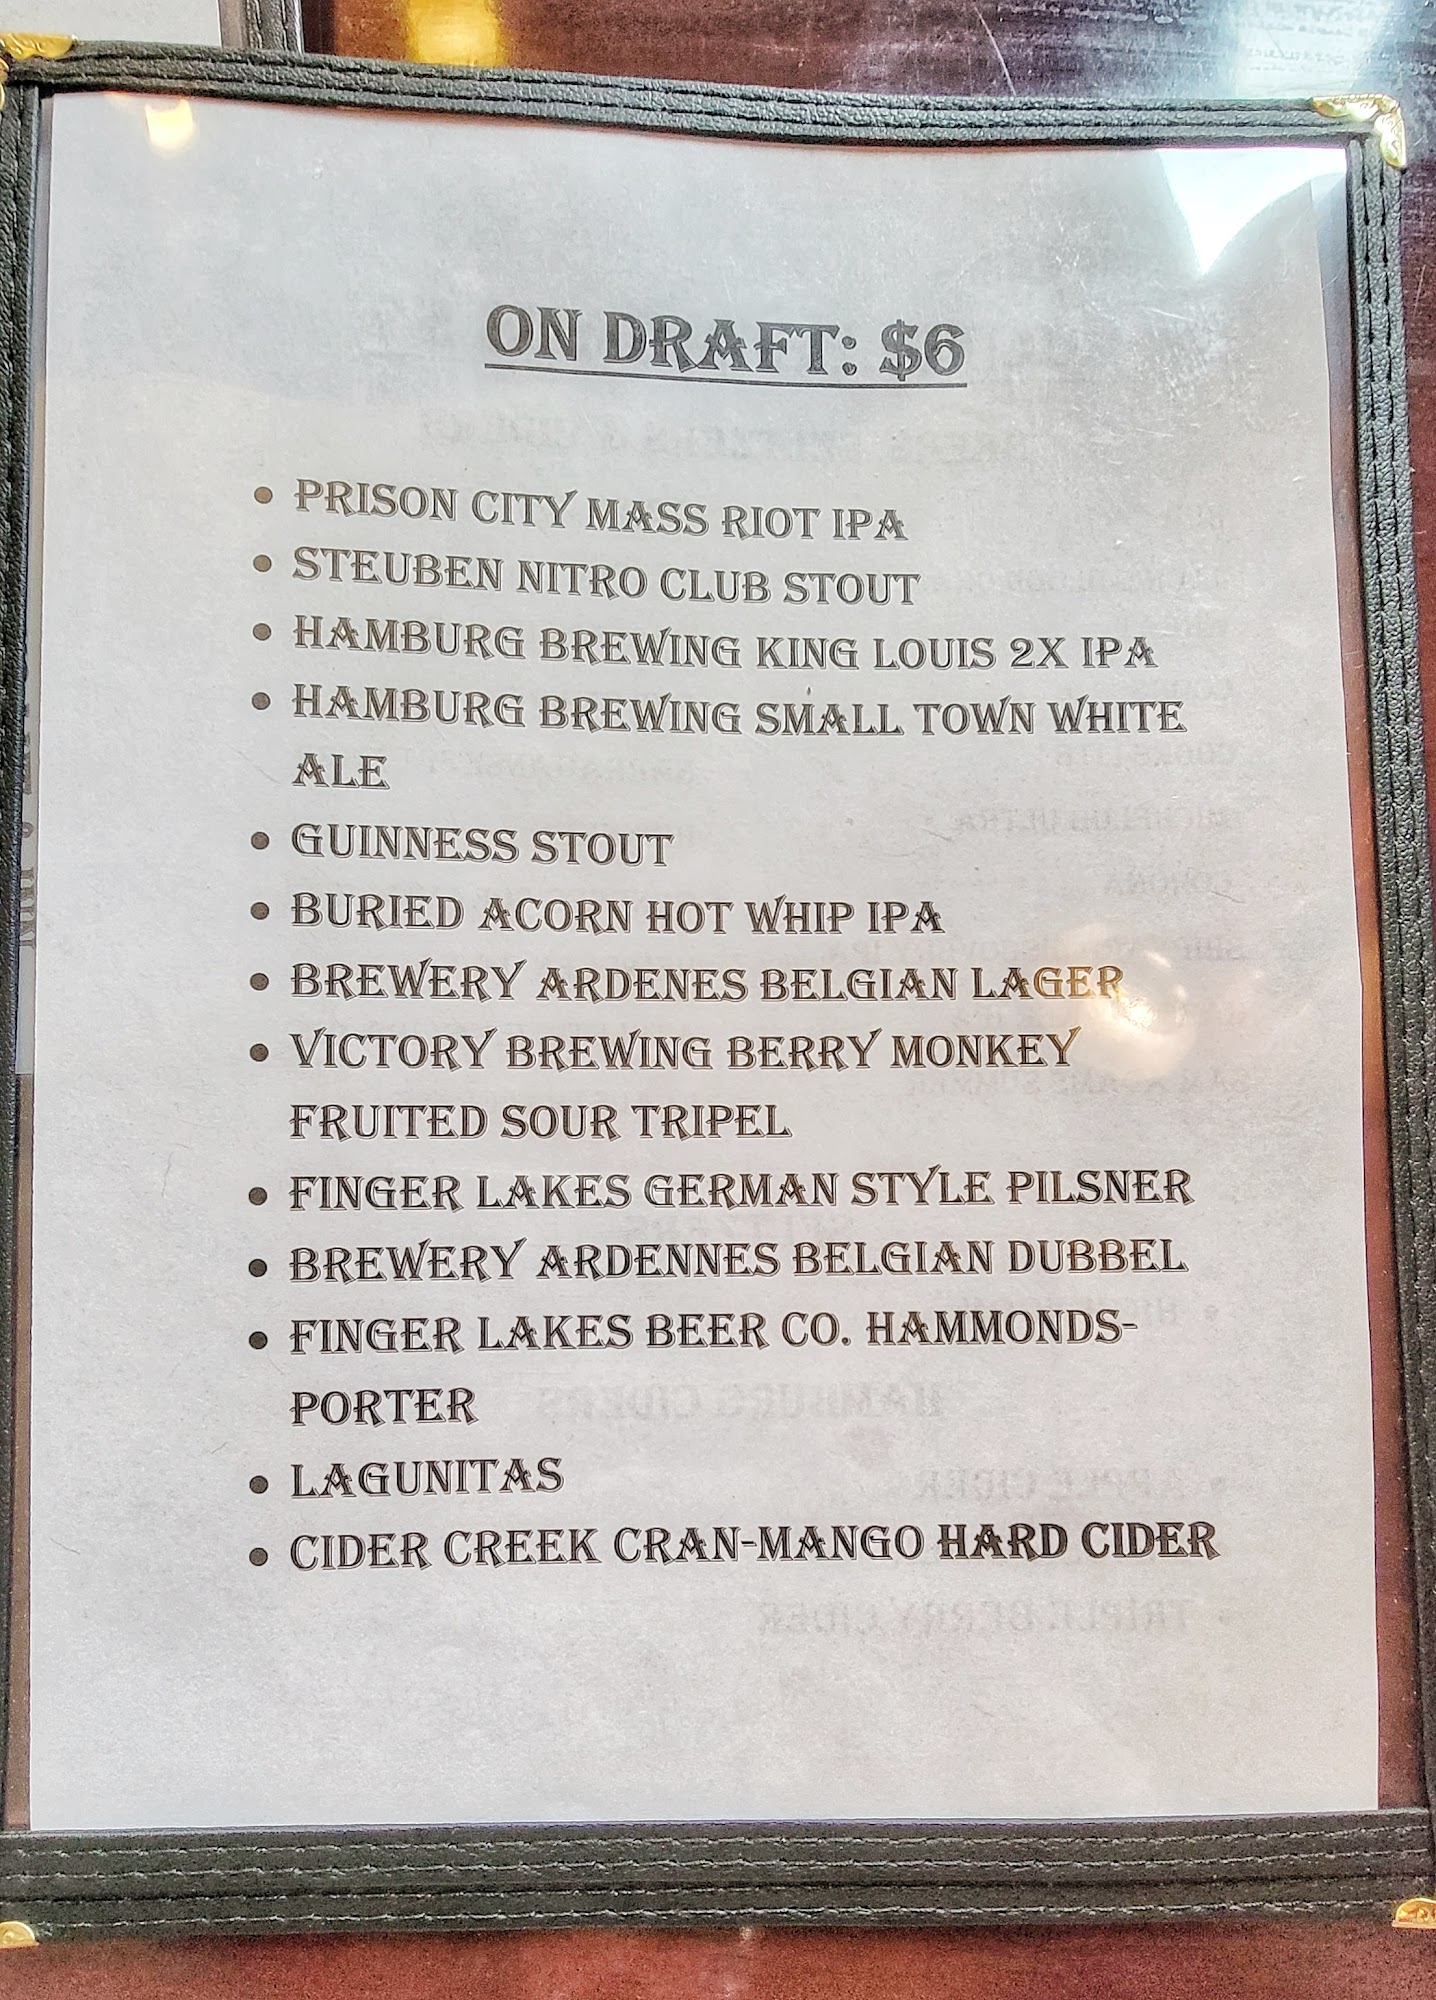 ON DRAFT: $6
• PRISON CITY MASS RIOT IPA
• STEUBEN NITRO CLUB STOUT
• HAMBURG BREWING KING LOUIS 2X IPA
• HAMBURG BREWING SMALL TOWN WHITE
ALE
• GUINNESS STOUT
• BURIED ACORN HOT WHIP IPA
• BREWERY ARDENES BELGIAN LAGER
• VICTORY BREWING BERRY MONKEY
FRUITED SOUR TRIPEL
• FINGER LAKES GERMAN STYLE PILSNER
• BREWERY ARDENNES BELGIAN DUBBEL
• FINGER LAKES BEER CO. HAMMONDS-
PORTER
• LAGUNITAS
• CIDER CREEK CRAN-MANGO HARD CIDER